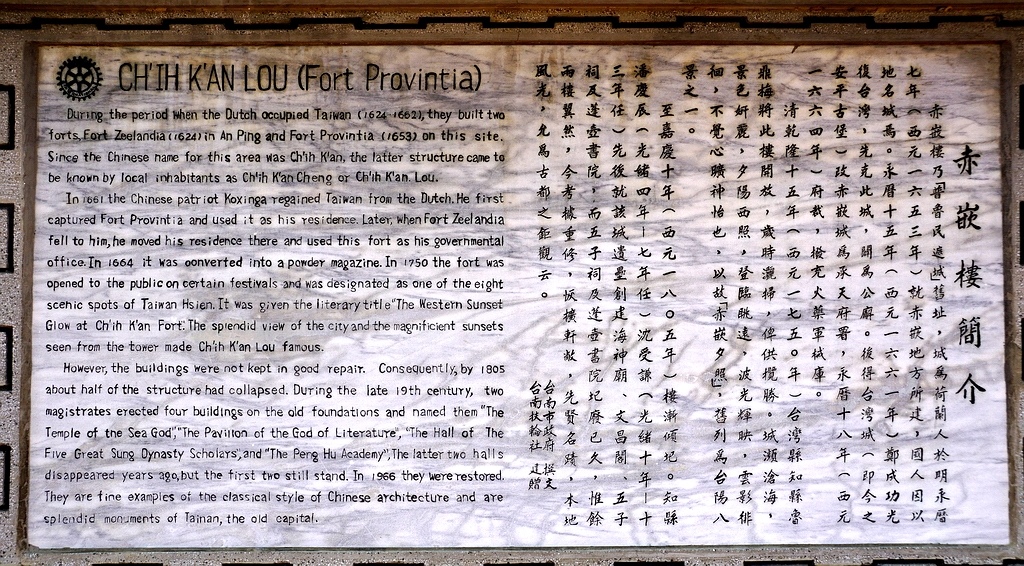 CH'IH K'AN LOU (Fort Provintia)
During the period when the Dutch occupied Taiwan (1624-1662), they built two
forts, Fort Zeelandia (1624) in An Ping and Fort Provintia (1653) on this site.
Since the Chinese name for this area was Ch'ih K'an, the latter structure came to
be known by local inhabitants as Ch'ih K'an Cheng or Ch'ih K'an Lou.
In 1661 the Chinese patriot Koxinga regained Taiwan from the Dutch. He first
captured Fort Provintia and used it as his residence. Later, when Fort Zeelandia
fell to him, he moved his residence there and used this fort as his governmental
office. In 1664 it was converted into a powder magazine. In 1750 the fort was
opened to the public on certain festivals and was designated as one of the eight
scenic spots of Taiwan Hsien. It was given the literary title "The Western Sunset
Glow at Ch'ih K'an Fort". The splendid view of the city and the magnificent sunsets
seen from the tower made Ch'ih K'an Lou famous.
However, the buildings were not kept in good repair. Consequently, by 1805
about half of the structure had collapsed. During the late 19th century, two
magistrates erected four buildings on the old foundations and named them "The
Temple of the Sea God", "The Pavilion of the God of Literature", "The Hall of The
Five Great Sung Dynasty Scholars", and "The Peng Hu Academy". The latter two halls
disappeared years ago, but the first two still stand. In 1966 they were restored.
They are fine examples of the classical style of Chinese architecture and are
splendid monuments of Tainan, the old capital.
赤嵌樓簡介
赤嵌樓乃普魯民遮城舊址,城為荷蘭人於明永曆
七年(西元一六五三年)就赤嵌地方所建,國人因以
地名城焉。永曆十五年(西元一六六一年)鄭成功光
復台灣,先克此城,關為公廨。後得台灣城(即今之
安平古堡)改赤嵌城為承天府署,永曆十八年(西元
一六六四年)府裁,撥充火藥軍械庫。
清乾隆十五年(西元一七五〇年)台灣縣知縣魯
鼎梅將此樓開放,歲時灑掃,俾供攬勝。城瀕滄海,
景色妍麗,夕陽西照,登臨眺遠,波光輝映,雲影徘
徊,不覺心曠神怡也,以故「赤嵌夕照」,舊列為台陽八
景之一。
至嘉慶十年(西元一八〇五年)樓漸傾圮。知縣
潘慶辰(光緒四年—七年任)沈受謙(光緒十年—十
三年任)先後就該城遺壘創建海神廟、文昌閣、五子
祠及蓬壺書院,而五子祠及蓬壺書院圮廢已久,惟餘
兩樓翼然,今考據重修,恢樓軒敞,先賢名蹟,本地
風光,允為古都之鉅觀云。
台南市政府 撰文
台南扶輪社 建贈